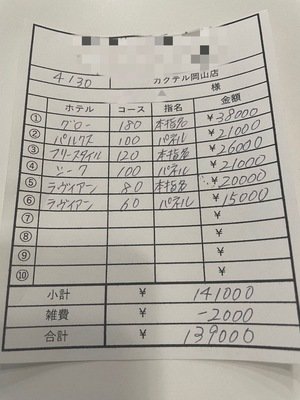 カクテル岡山店
4/30 様
ホテル コース 指名 金額
① グロー 180 本指名 ¥38000
② パルクス 100 パネル ¥21000
③ フリースタイル 120 本指名 ¥26000
④ シーク 100 パネル ¥21000
⑤ ラヴィアン 80 本指名 ¥20000
⑥ ラヴィアン 60 パネル ¥15000
⑦ ¥
⑧ ¥
⑨ ¥
⑩ ¥
小計 ¥ 141000
雑費 ¥ -2000
合計 ¥ 139000